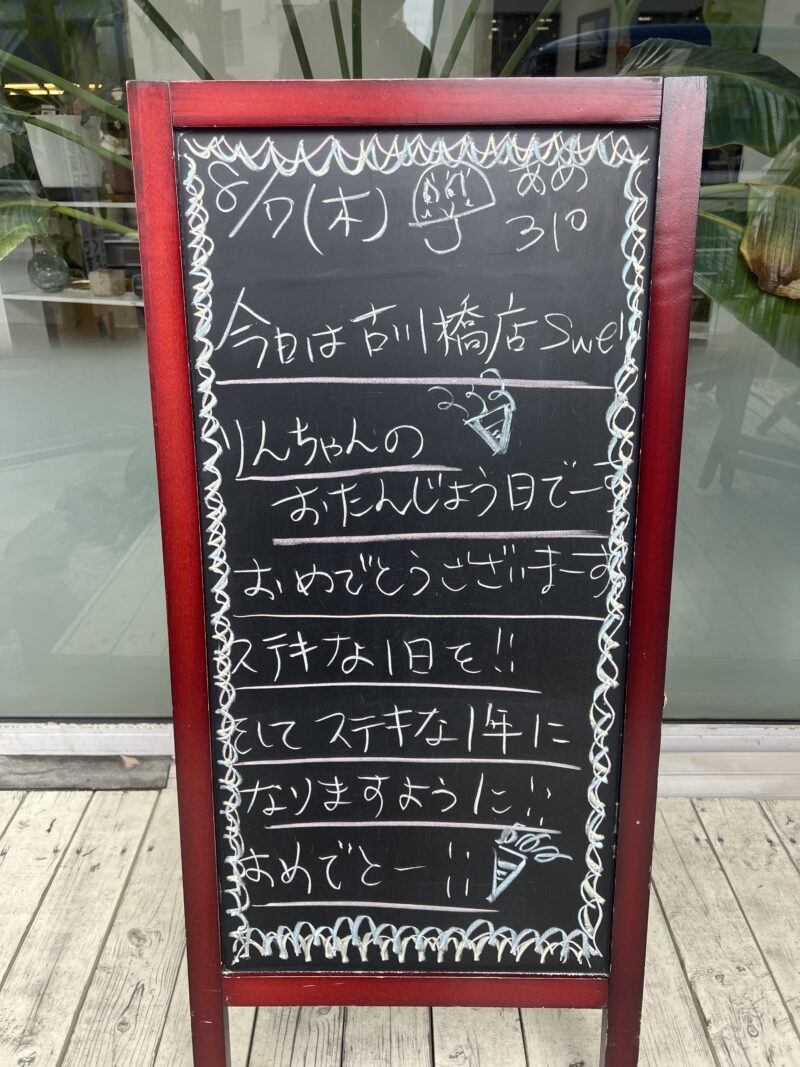 8/7(木) あめ
31°
今日は古川橋店 Swe
りんちゃんの
おたんじょう日でーす
おめでとうございまーす
ステキな1日を!!
そして ステキな1年に
なりますように!!
おめでとー!!